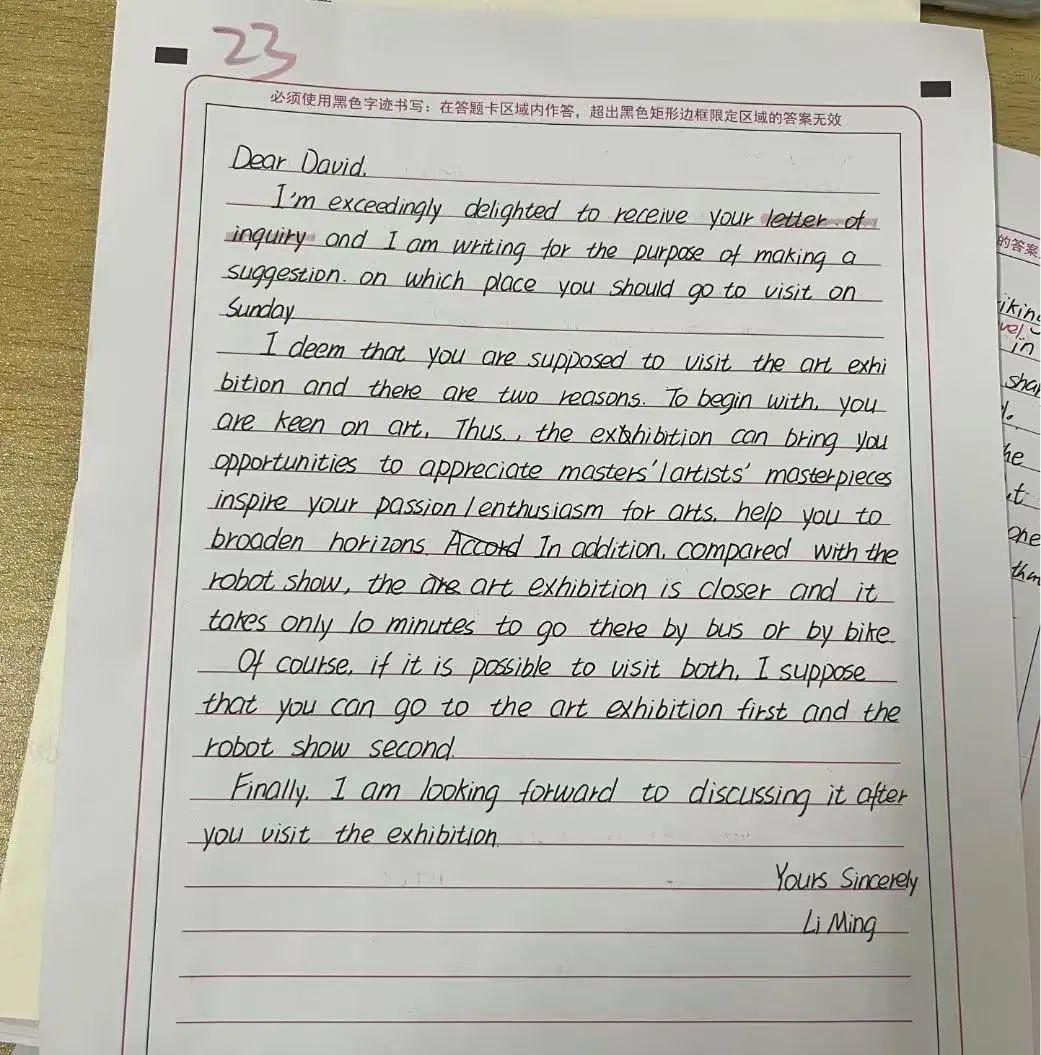 23
必须使用黑色字迹书写：在答题卡区域内作答，超出黑色矩形边框限定区域的答案无效
Dear David,
I'm exceedingly delighted to receive your letter of
inquiry and I am writing for the purpose of making a
suggestion. on which place you should go to visit on
Sunday
I deem that you are supposed to visit the art exhi
bition and there are two reasons. To begin with, you
are keen on art. Thus, the exhibition can bring you
opportunities to appreciate masters'/artists' masterpieces
inspire your passion/enthusiasm for arts, help you to
broaden horizons. Accord In addition, compared with the
robot show, the are art exhibition is closer and it
takes only 10 minutes to go there by bus or by bike.
Of course, if it is possible to visit both, I suppose
that you can go to the art exhibition first and the
robot show second.
Finally, I am looking forward to discussing it after
you visit the exhibition.
Yours Sincerely
Li Ming
的答案
iking
vel.
in
shar
he
t
one
than